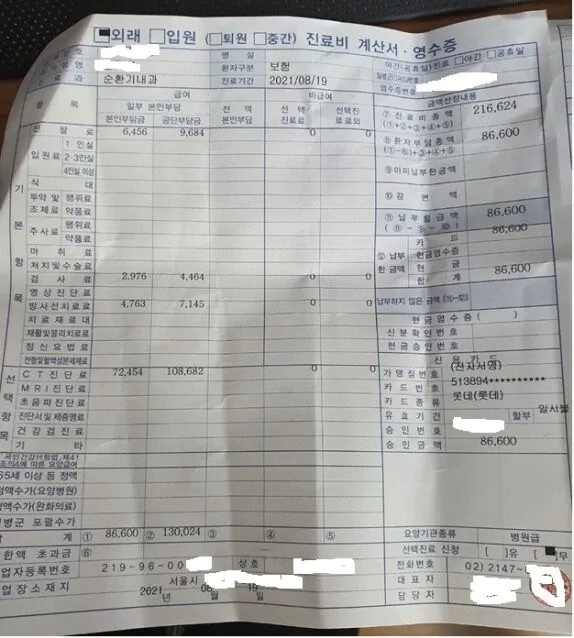 ■외래 □입원 (□퇴원 □중간) 진료비 계산서·영수증
병실
야간(공휴일)진료 □야간 □공휴일
환자구분 보험
진료과 순환기내과 진료기간 2021/08/19
영수증번호
항목 급여 비급여 금액산정내용
일부 본인부담 전액 본인부담 선택 진료료 선택진료료외
본인부담금 공단부담금
⑦ 진료비총액 216,624
(①+②+③+④+⑤)
진찰료 6,456 9,684 0 0
⑧ 환자부담총액 86,600
(①-⑥)+③+④+⑤
입원료 1인실
2-3인실
4인실 이상
⑨ 이미납부한금액
식대
⑩ 감면액
투약 및 조제료 행위료
약품료
⑪ 납부할금액 86,600
(⑧-⑨-⑩)
주사료 행위료
약품료
카드 86,600
마취료
⑫ 납부한 금액 현금영수증
처치및수술료
현금
검사료 2,976 4,464 0 0
합계 86,600
영상진단료
방사선치료료 4,763 7,145 0 0
납부하지 않은 금액 (⑪-⑫)
치료재료대
현금영수증( )
재활및물리치료료
신분확인번호
정신요법료
현금승인번호
전혈및혈액성분제제료
신용카드
CT진단료 72,454 108,682 0 0
(전자서명)
가맹점번호
MRI진단료
513894**********
카드번호
초음파진단료
카드종류 롯데(롯데)
진단서및제증명료
유효기간 할부 일시불
건강검진료
승인번호
기타
승인금액 86,600
기본항목
선택항목
국민건강보험법 제41조의4에 따른 요양급여
65세 이상 등 정액
정액수가(요양병원)
정액수가(완화의료)
병군 포괄수가
계 ① 86,600 ② 130,024 ③ ④ ⑤
요양기관종류 병원급
한액 초과금 ⑥ —
선택진료 신청 [ ]유 [■]무
업자등록번호 219-96-00 상호
전화번호 02) 2147-
업장소재지 서울시
대표자
2021년 08월 19일
담당자